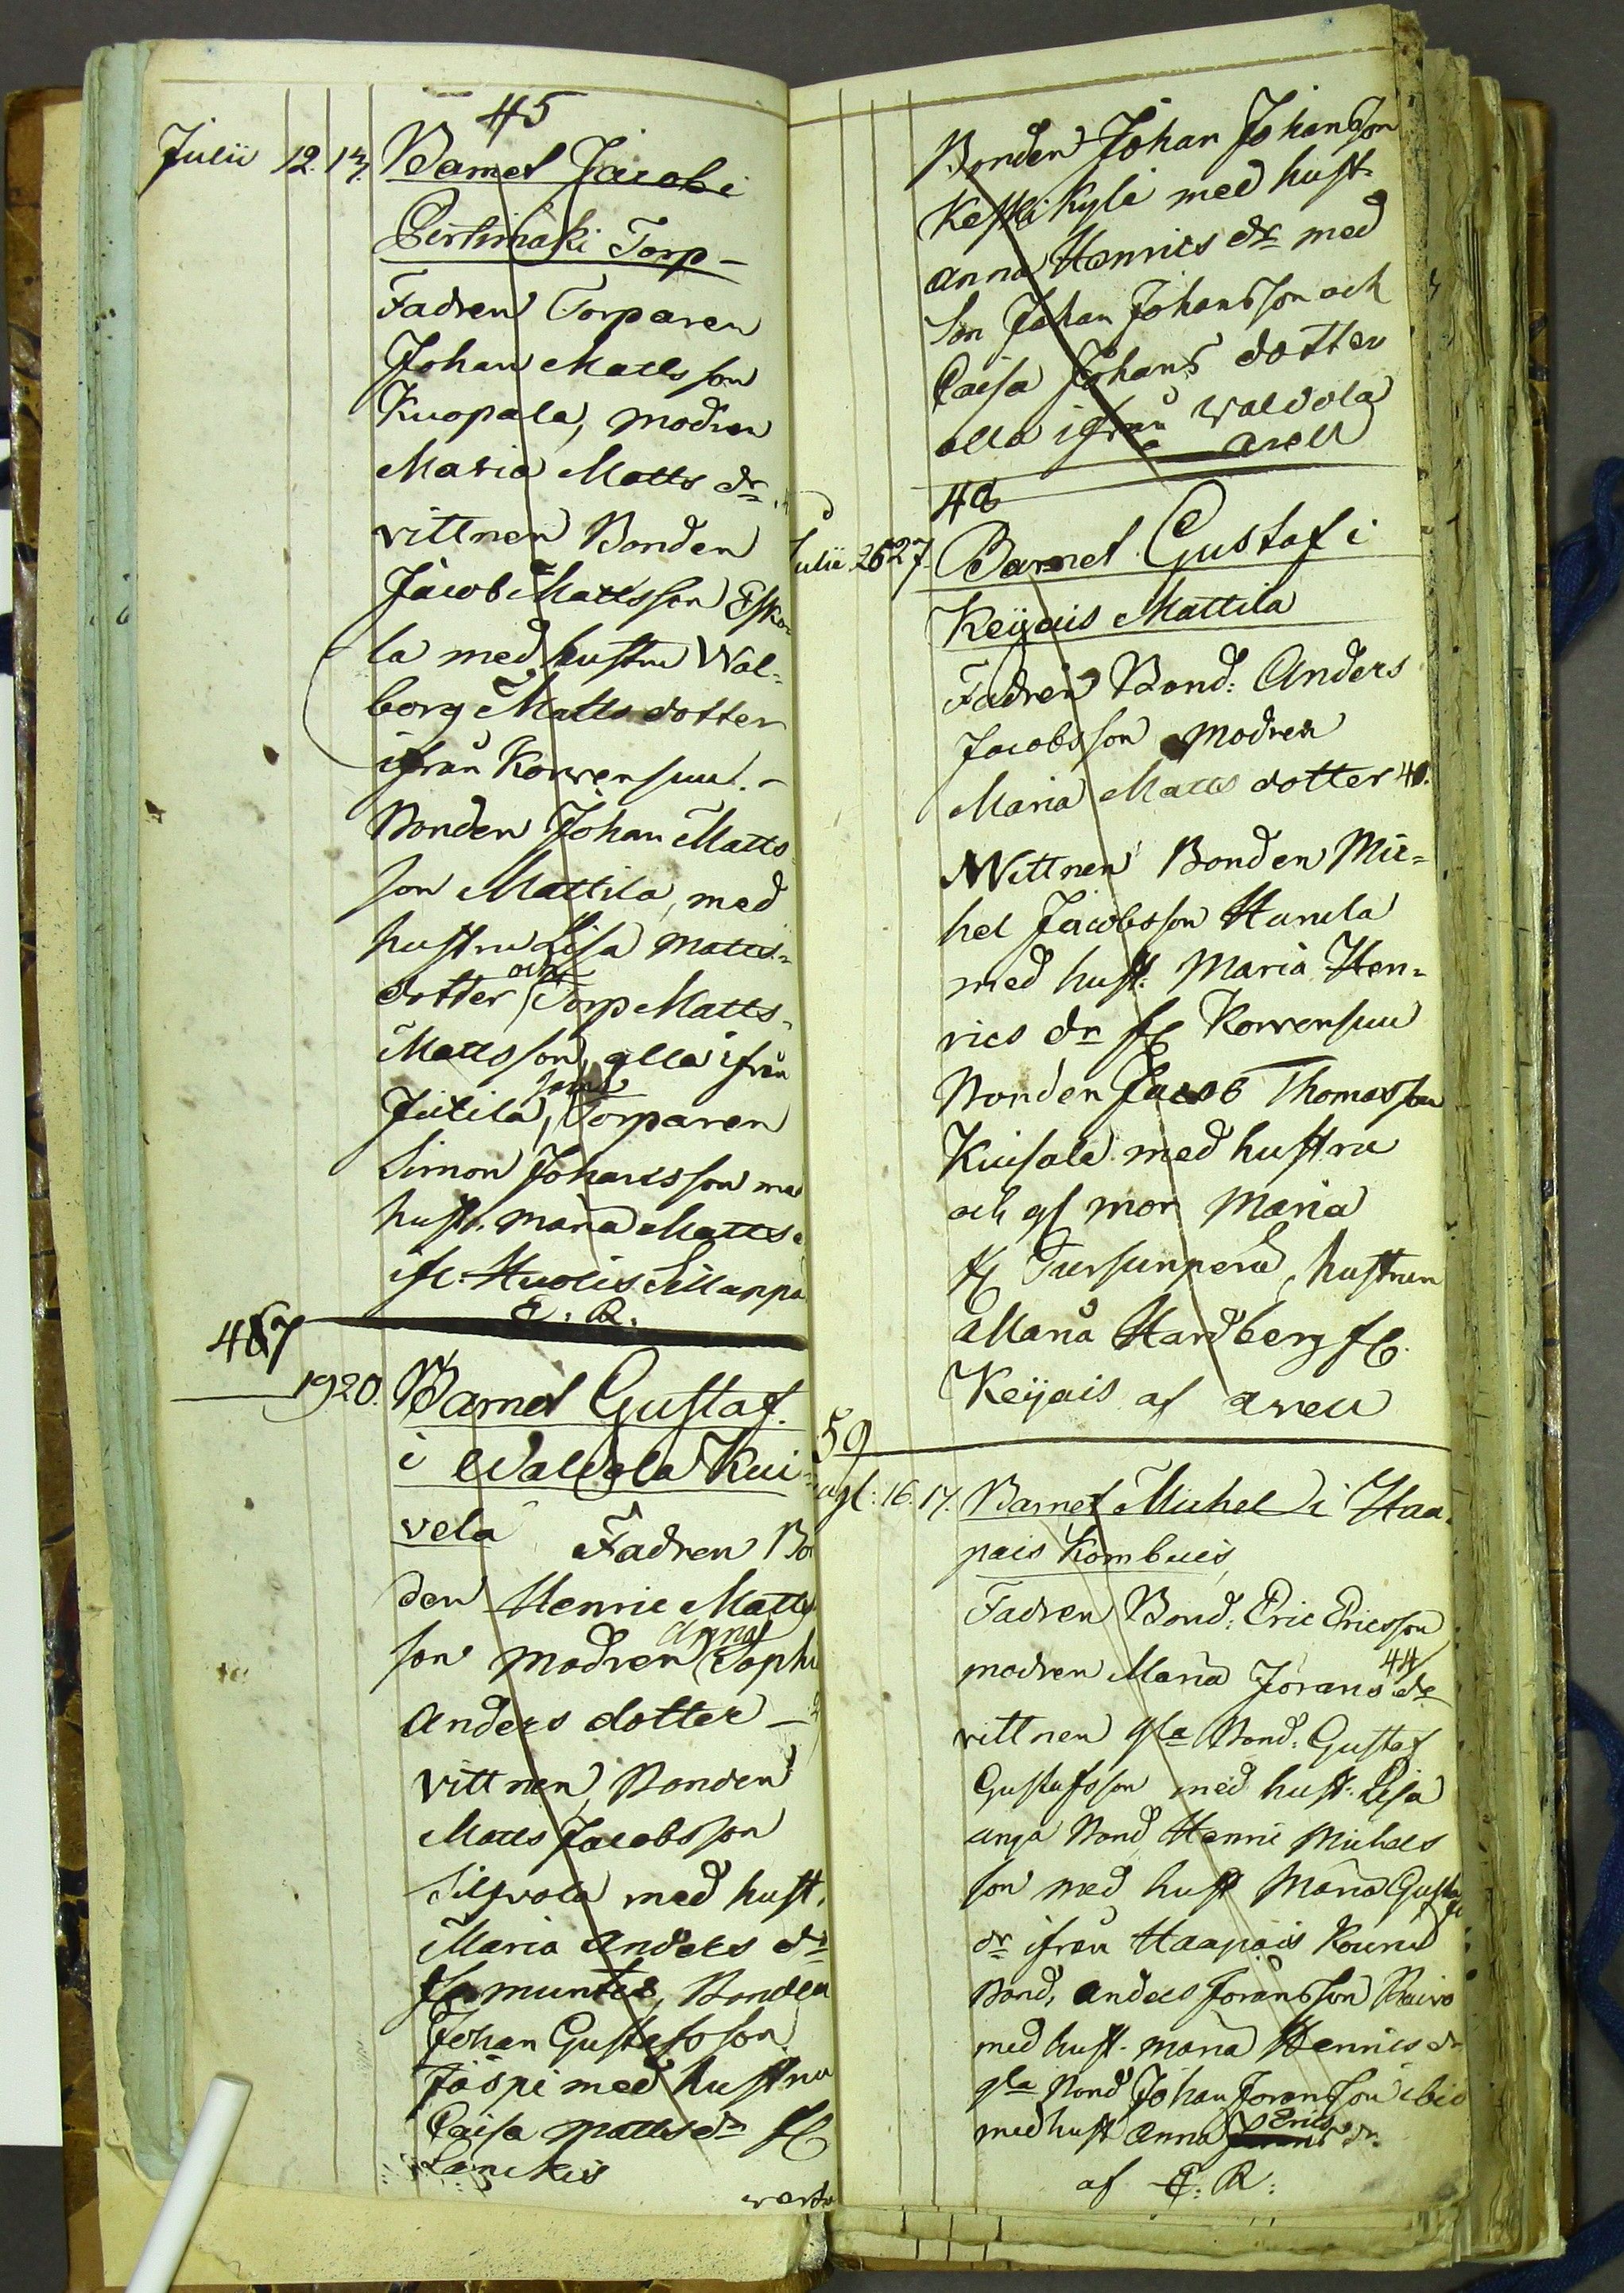 45
Julii 12. 13. Barnet Jacob i
Pertimäki Torp -
Fadren Torparen
Johan Matts son
Kuopala, modren
Maria Matts dr.
vittnen Bonden
Jacob Mattsson Esko
la med hustru Wal=
borg Matts dotter
ifrån Korvensuu. -
Bonden Johan Matts
son Mattila, med
hustru Lisa Matts=
dotter och Torp Matts
Mattsson, alla ifrån
Jutila, samt Torparen
Simon Johansson med
hustr. Maria Matts d
ifr. Huolis Sillanpä
E: R.
467
19 20. Barnet Gustaf
i Waldola Kui=
vela Fadren Bo
den Henric Matts
son modren Anna Sophi
Anders dotter -
vittnen, Bonden
Matts Jacobsson
Silvola med hust.
Maria Anders dr
fr Muntis, Bonden
Johan Gustafsson
Jäspi med hustru
Caisa Matts dr fr
Lanckis
verte
Bonden Johan Johansson
Keskikylä med hust.
Anna Henrics dr med
Son Johan Johansson och
Caisa Johans dotter
alla ifrån Waldola
Arell
48
Julii 26 27. Barnet Gustaf i
Keijais Mattila
Fadren Bond: Anders
Jacobsson modren
Maria Matts dotter 40.
Wittnen Bonden Mic=
hel Jacobsson Hanula
med hust. Maria Hen=
rics dr fr Korvensuu
Bonden Jacob Thomasson
Kuisala med hustru
och gl mor Maria
fr Tursunperä, hustrun
Maria Hardberg fr
Keijais af Arell
59
Augt: 16. 17. Barnet Michel i Haa=
pais Kombuis,
Fadren Bond: Eric Ericsson
modren Maria Jörans dr 44
vittnen gla Bond: Gustaf
Gustafsson med hust. Lisa
unga Bond Henric Michels
son med hust Maria Gustafs
dr ifrån Haapais Kouru
Bond, Anders Joransson Raivo
med hust. Maria Henrics dr
gla Bond Johan Joransson ibid
med hust Anna Erics dr
af E: R: